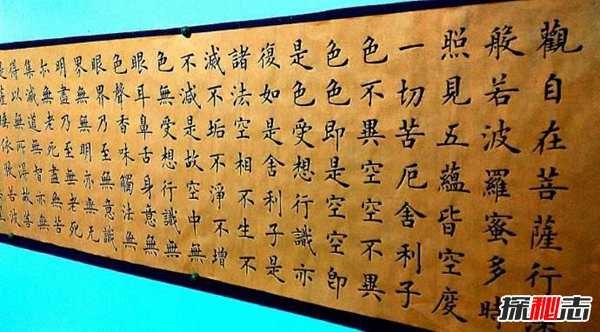 觀自在菩薩行
般若波羅蜜多時
照見五蘊皆空度
一切苦厄舍利子
色不異空空不異
色色即是空空即
是色受想行識亦
復如是舍利子是
諸法空相不生不
滅不垢不淨不增
不減是故空中無
色無受想行識無
眼耳鼻舌身意無
色聲香味觸法無
眼界乃至無意識
界無無明亦無无
明盡乃至無老死
亦無老死盡無苦
集滅道無智亦無
得以無所得故菩
提薩埵依般若波
探秘志